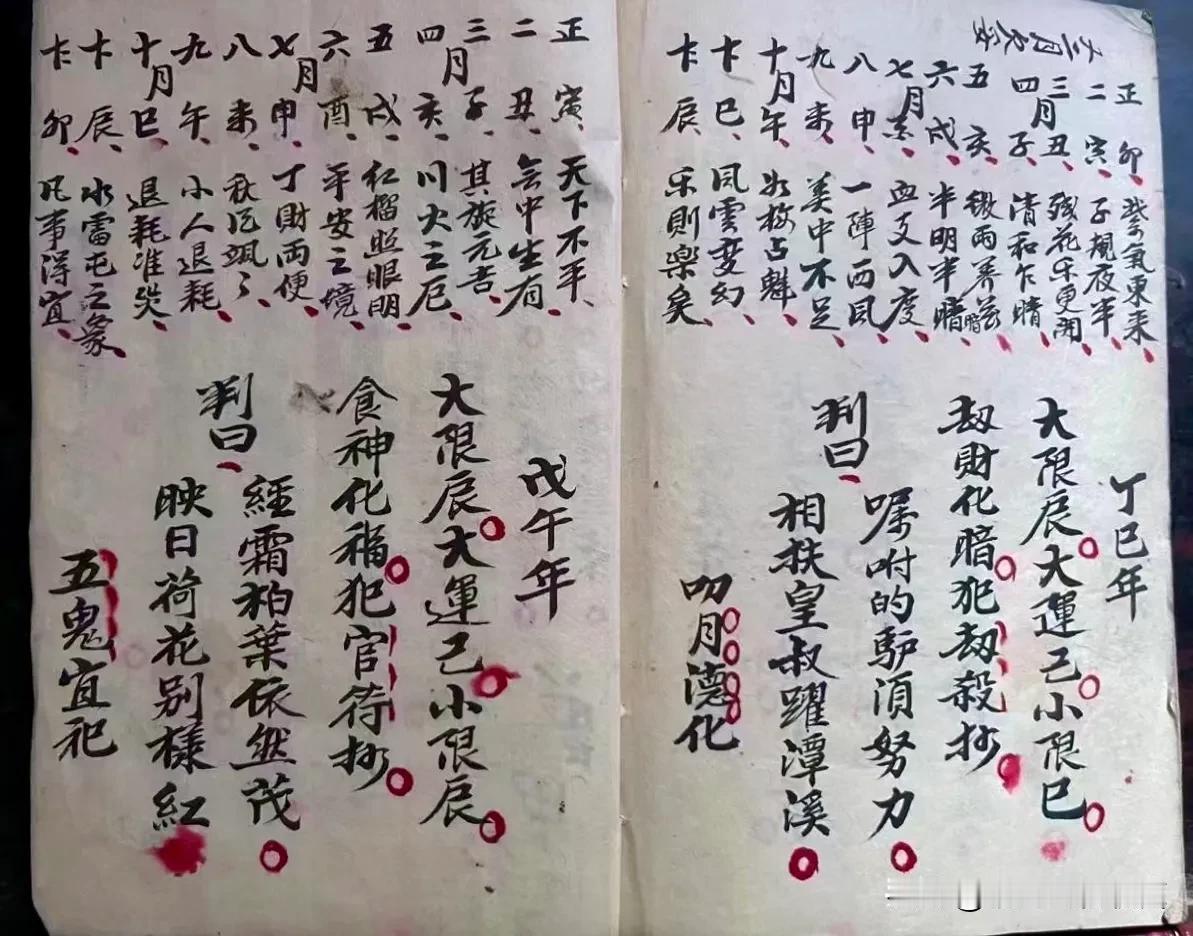 正 卯、紫氣東來、
二 寅、子規夜半、
三 丑、殘花不更開、
四月 子、清和乍晴、
五 亥、微雨養
六 戌、半明半暗、
七月 血支入度、
八 申、一陣西風、
九 未、美中不足、
十月 午、如梅占魁、
巳、風雲變幻、
辰、樂則樂矣、
丁巳年
大限辰大運己小限巳
劫財化暗犯劫殺抄
判曰、
嘱咐的驴須努力
相扶皇叔躍潭溪
叨月德化
正 寅、天下不平、
二 丑、無中生有、
三 子、其旋元吉、
四月 亥、川火之厄、
五 戌、紅榴照眼明、
六 酉、平安之境、
七月 申、丁財兩便、
八 未、秋風颯々、
九 午、小人退耗、
十月 巳、退耗准
辰、水雷屯之象、
卯、凡事得宜、
戊午年
大限辰大運己小限辰
食神化福犯官符抄
判曰、
經霜柏葉依然茂
映日荷花别樣紅
五鬼宜祀